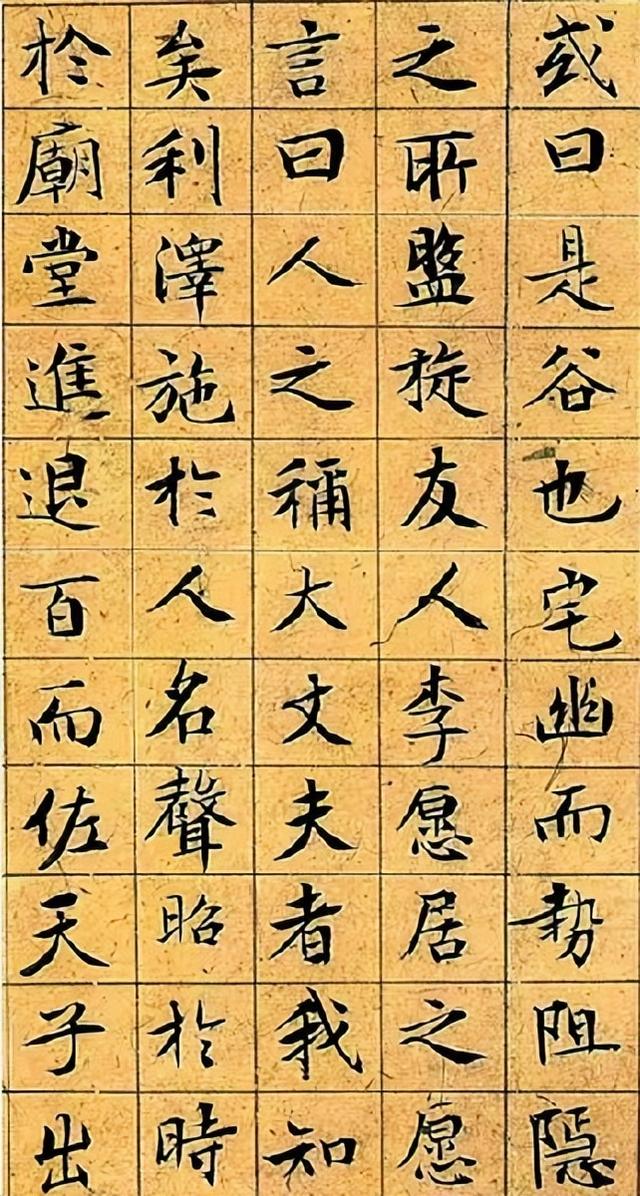 或曰是谷也宅幽而勢阻隱
之所盤旋友人李愿居之愿
言曰人之稱大丈夫者我知
矣利澤施於人名聲昭於時
於廟堂進退百而佐天子出